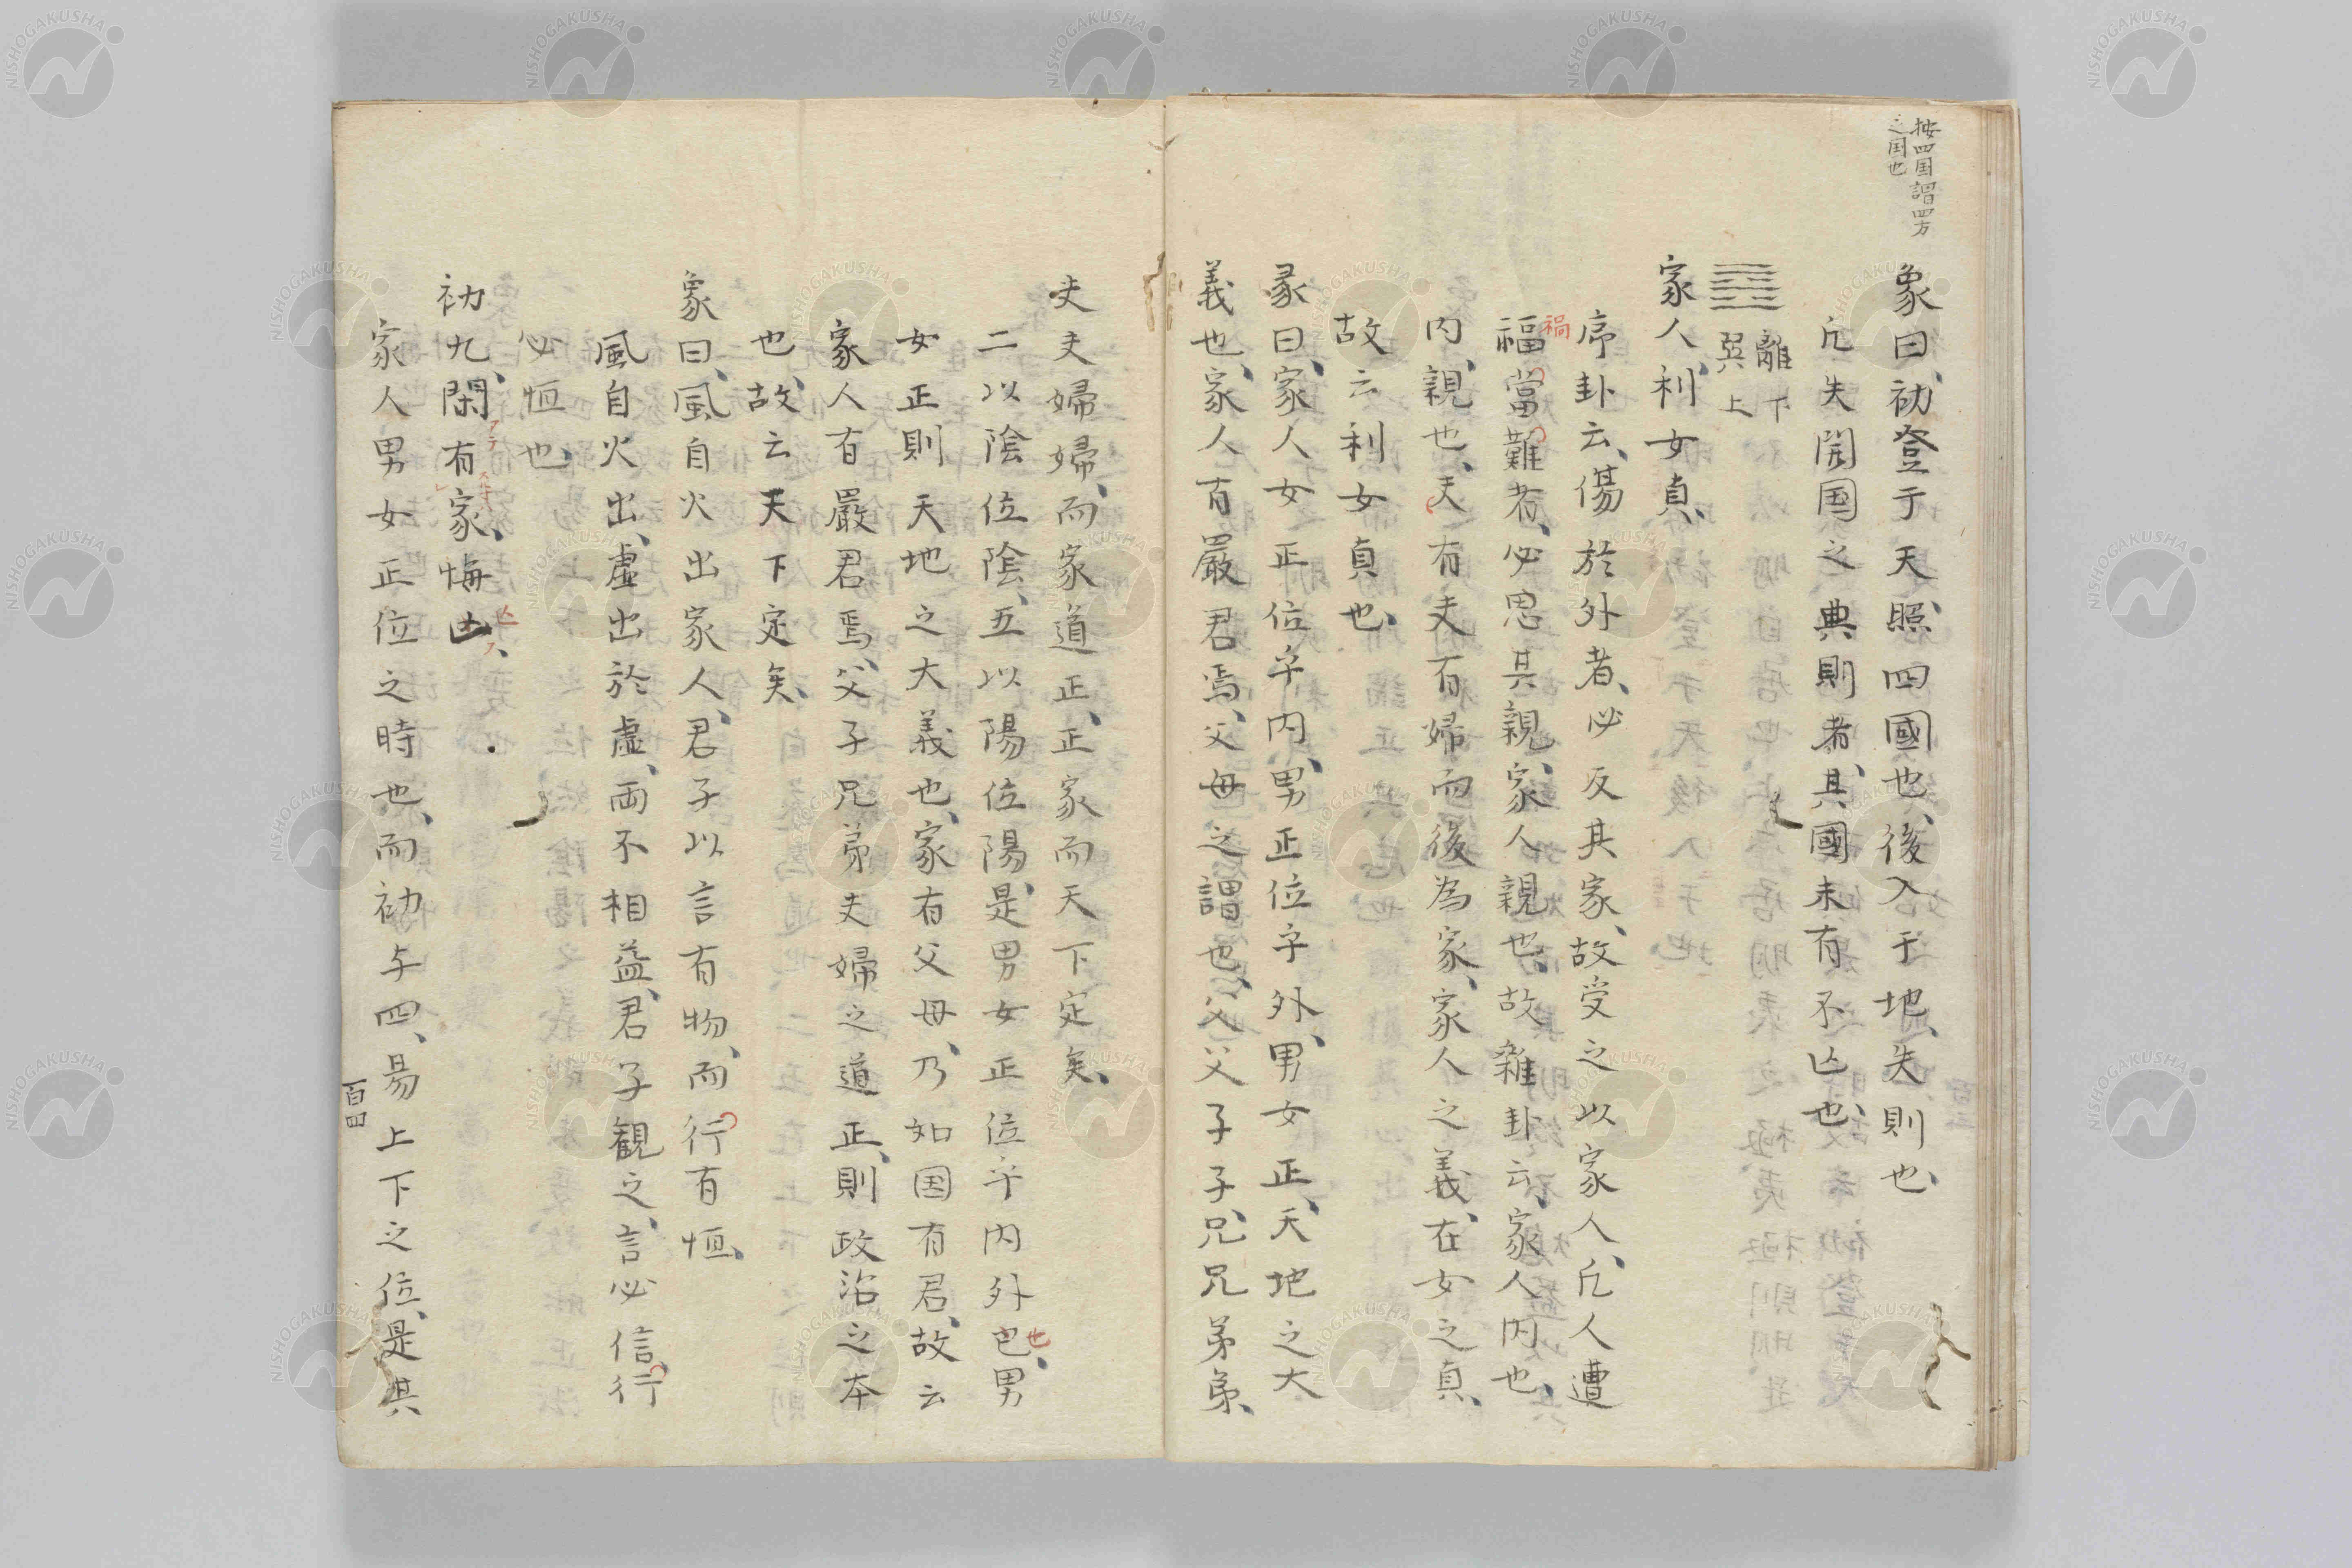 按四国謂四方
之国也
象曰、初登于天、照四國也、後入于地、失則也、
凢失開国之典則者、其國未有不亾也、
離下
巽上
家人、利女貞、
序卦云、傷於外者、必反其家、故受之以家人、凢人遭
禍
福當難者、必思其親、家人親也、故雜卦云、家人内也、
内、親也、夫有夫有婦而後為家、家人之義、在女之貞、
故云利女貞也、
彖曰、家人女正位乎内、男正位乎外、男女正、天地之大
義也、家人有嚴君焉、父母之謂也、父父子子、兄兄弟弟、
夫夫婦婦、而家道正、正家而天下定矣、
二以陰位陰、五以陽位陽、是男女正位乎内外也、男
也
女正則天地之大義也、家有父母、乃如国有君、故云
家人有嚴君焉、父子兄弟夫婦之道正、則政治之本
也、故云天下定矣、
象曰、風自火出家人、君子以言有物、而行有恒、
風自火出、虚出於虚、両不相益、君子観之、言必信、行
必恒也、
初九、閑有家、悔亾、
家人男女正位之時也、而初与四、易上下之位、是其
百四
NISHOGAKUSHA